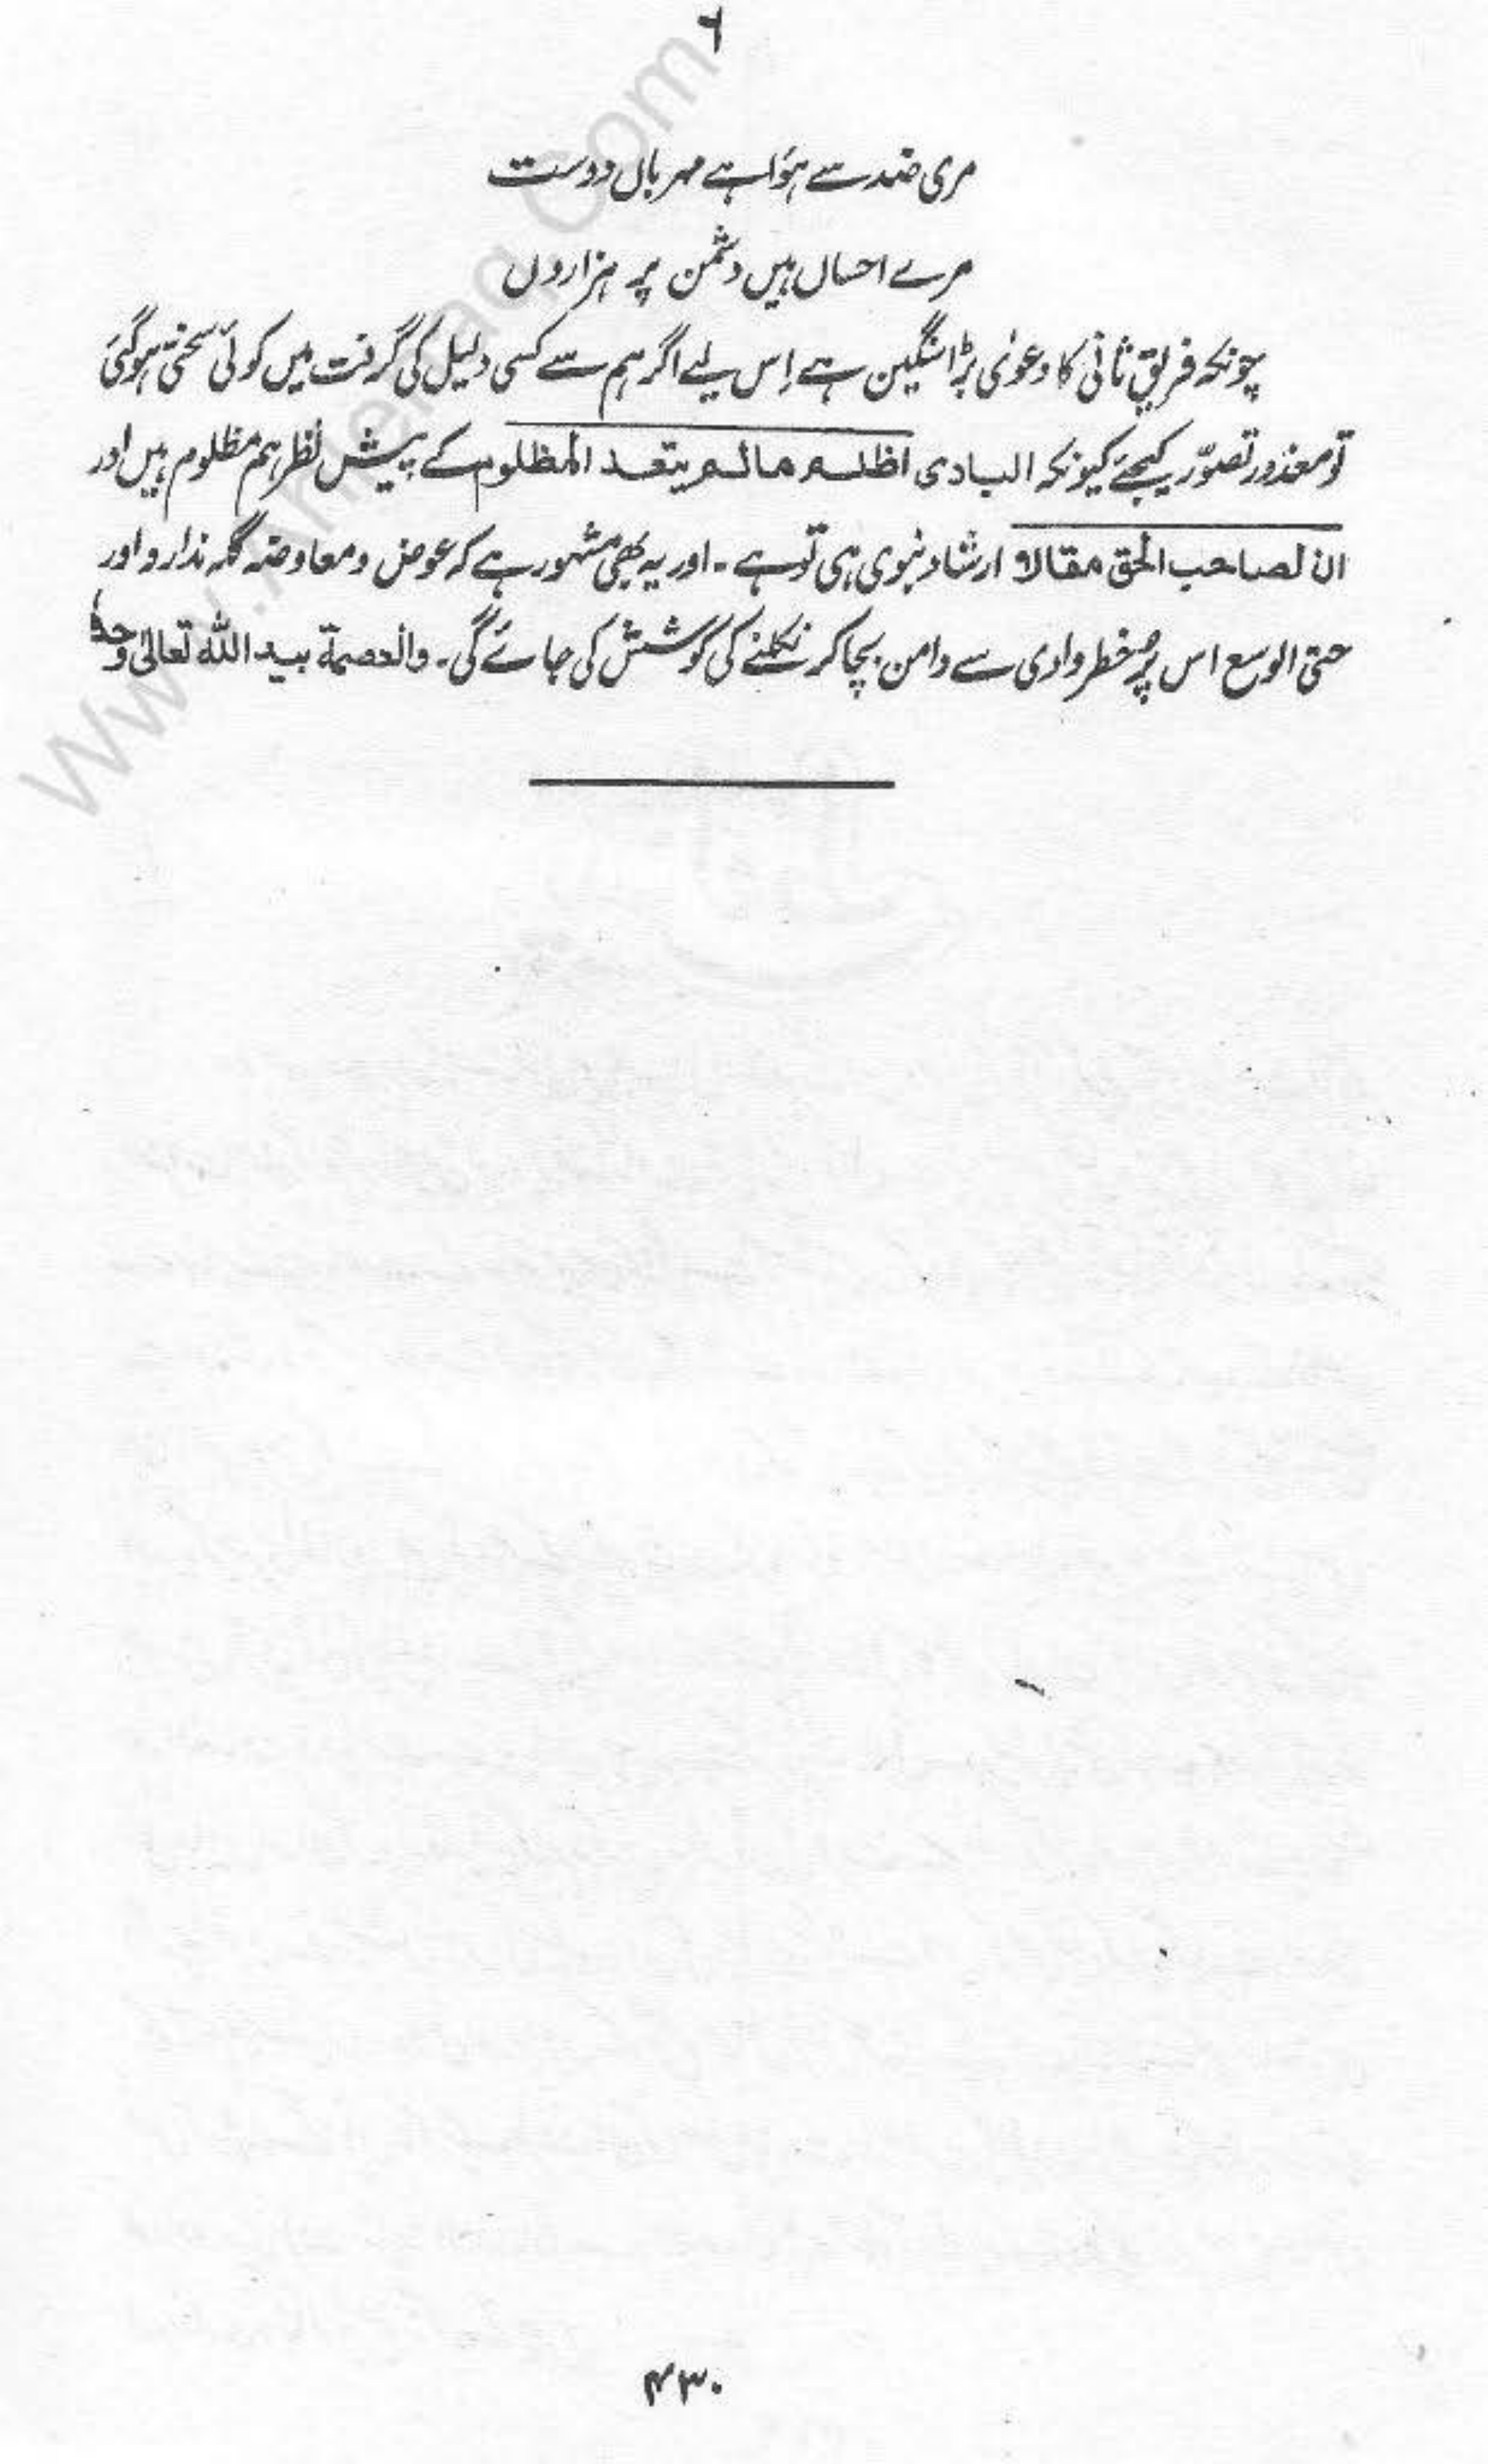 ٦
مری ضد سے ہؤا ہے مہرباں دوست
مرے احساں ہیں دشمن پر ہزاروں
چونکہ فریق ثانی کا دعوٰی بڑا سنگین ہے اِس لیے اگر ہم سے کسی دلیل کی گرفت میں کوئی سختی ہوگئی
تو معذور تصوّر کیجئے کیونکہ البادی اظلم مالم یتعد المظلوم کے پیش نظر ہم مظلوم ہیں اور
ان لصاحب الحق مقالا ارشاد نبوی ہی تو ہے ۔ اور یہ بھی مشہور ہے کہ عوض و معاوضہ گلہ ندارد اور
حتی الوسع اس پُر خطر وادی سے دامن بچا کر نکلنے کی کوشش کی جائے گی ۔ والعصمة بید اللہ تعالیٰ وحدہ
۴۳۰